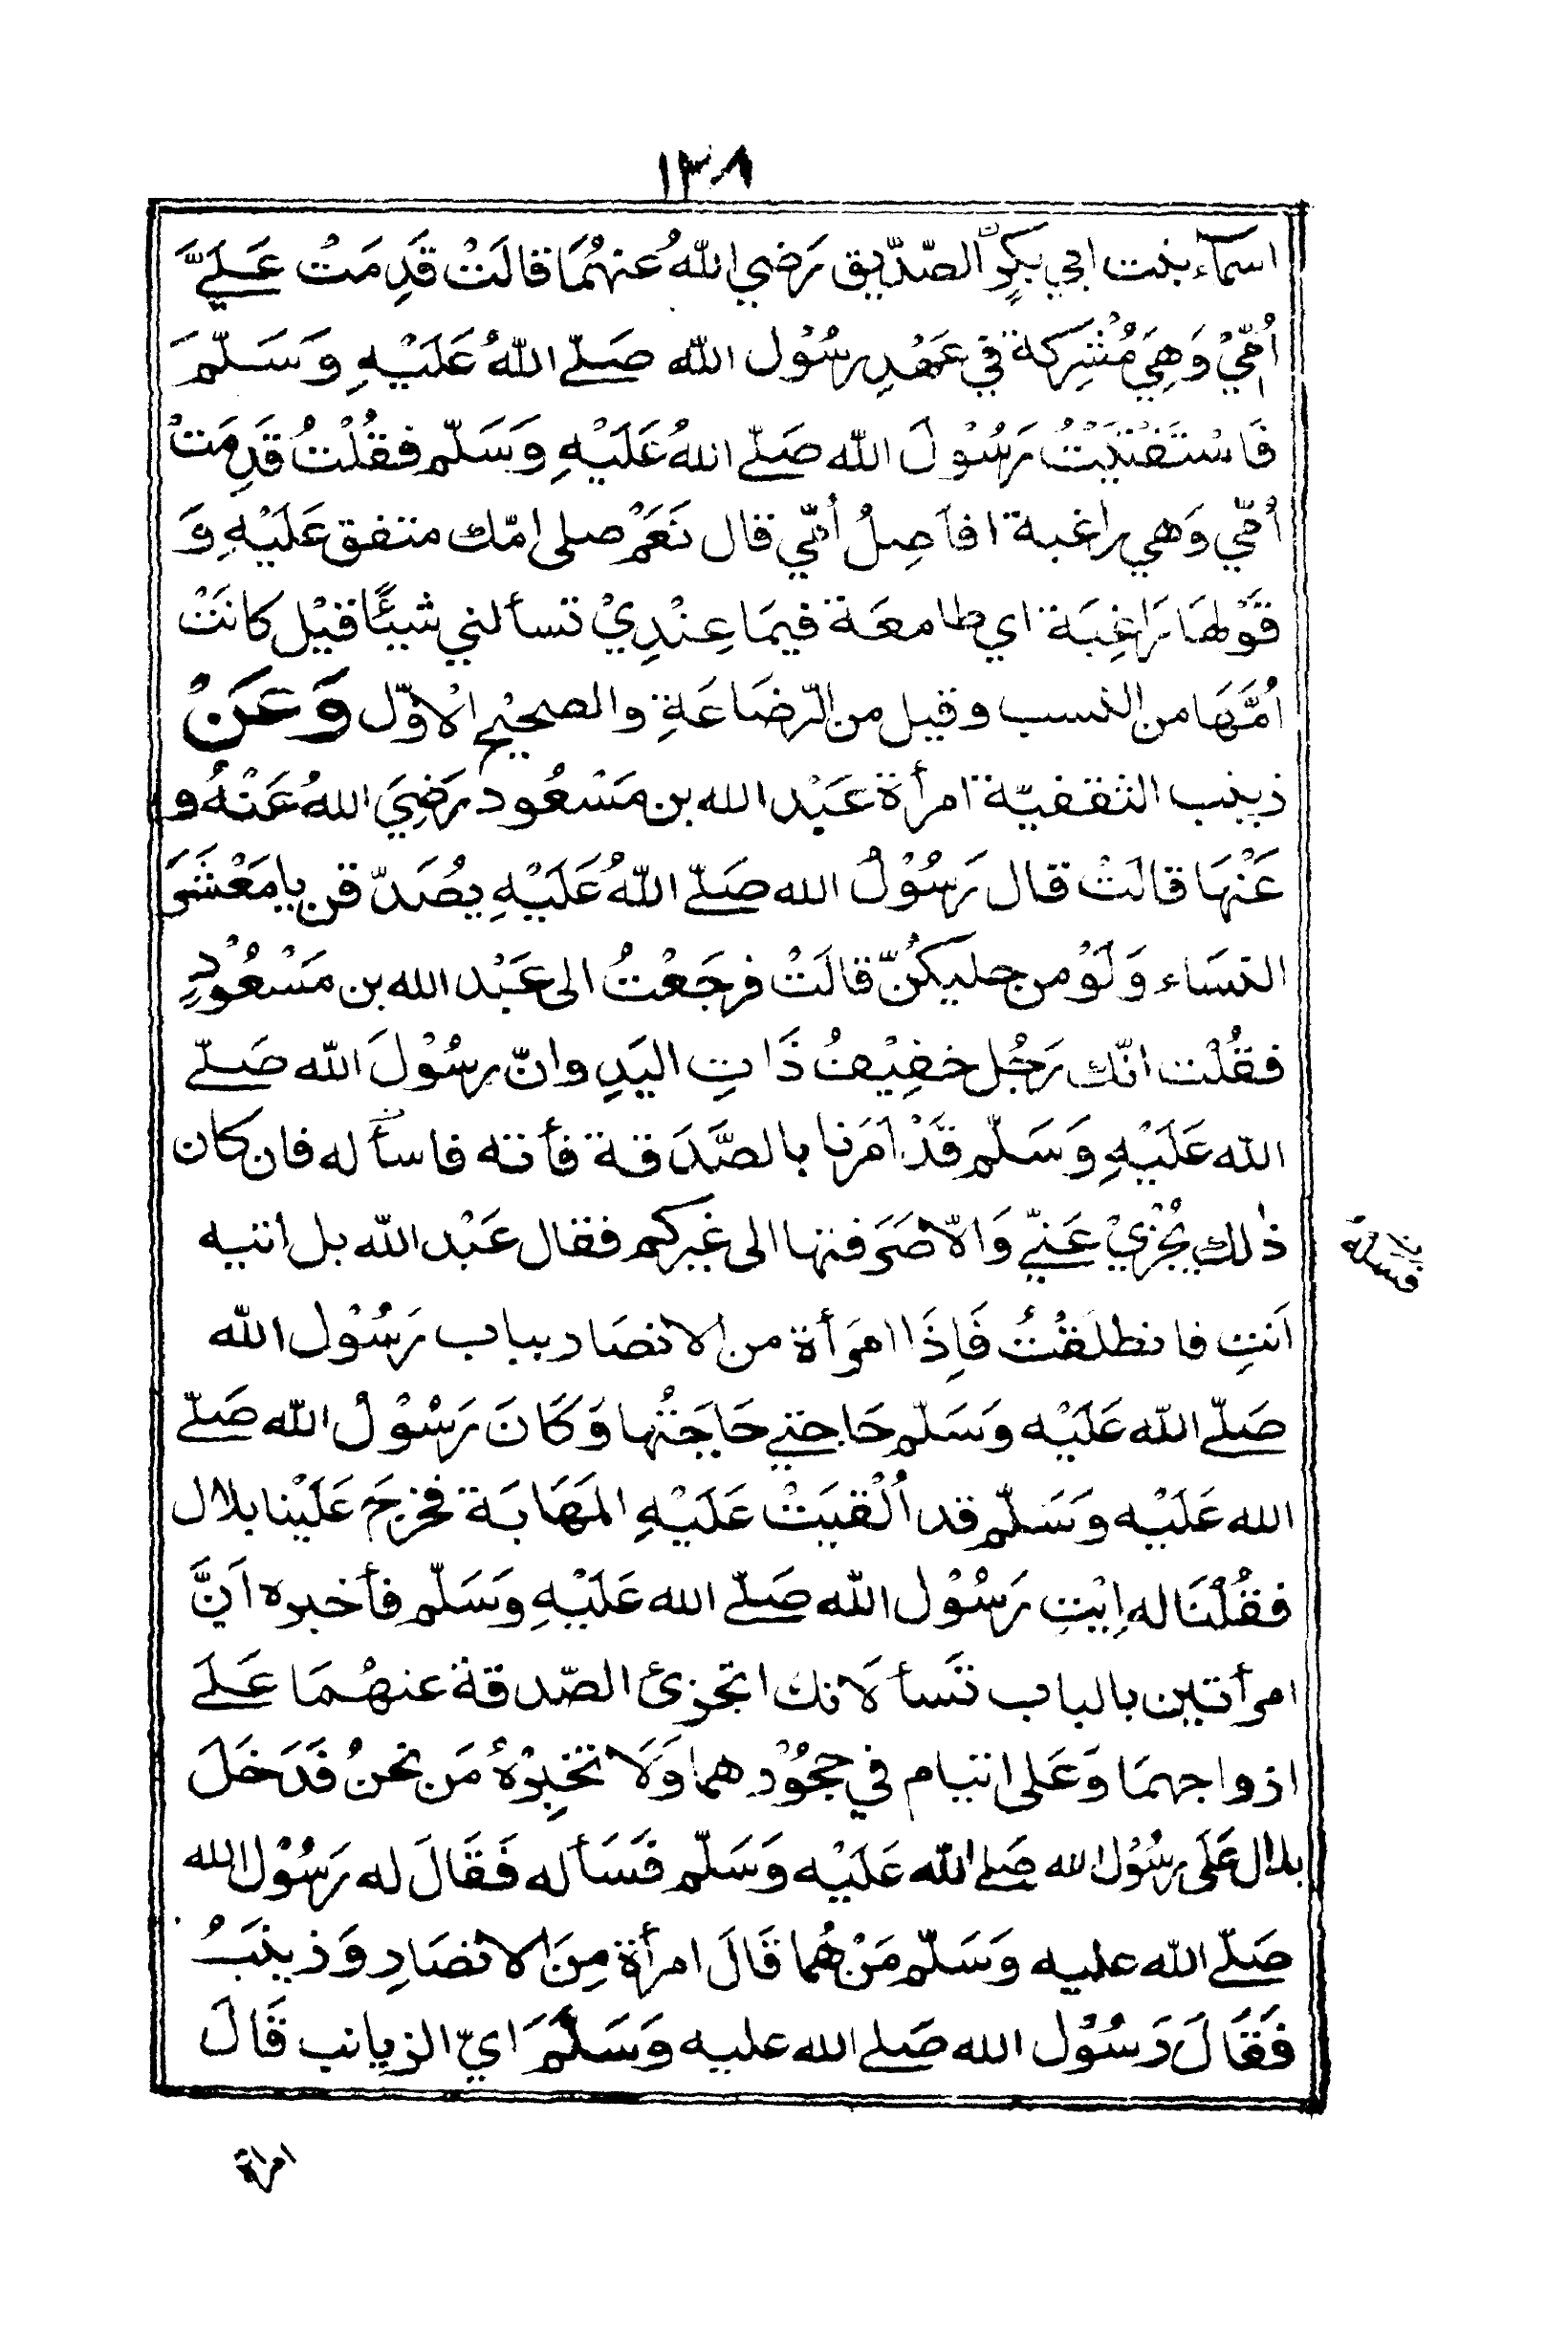 ١٣٨
اسمآء بنت ابي بكرٍ الصّدّيق رَضي اللّٰهُ عنهُمَا قالَتْ قَدِمَتْ عَلَيَّ
اُمِّيْ وَهِيَ مُشْرِكة في عَهْدِ رسُوْل اللّٰه صَلّے اللّٰهُ عَلَيْهِ وَسَلّمَ
فَاسْتَفْتَيْتُ رَسُوْلَ اللّٰه صَلّے اللهُ عَلَيْهِ وَسَلّم فقُلْتُ قَدِمَتْ
اُمّي وَهي راغبة افاَصِلُ اُمّي قال نَعَمْ صلى امّك متفق عَلَيْهِ وَ
قَوْلهَا رَاغِبَة اي طامعَة فيمَا عِنْدِيْ تسألني شيئًا قيْل كانَتْ
اُمَّهَا من النسب وقيل من الرّضَاعَةِ والصحيْح الْاوّل وَعَنْ
زينب الثقفيّة امرأة عَبْد الله بن مَسْعُود رَضِيَ اللهُ عَنْهُ و
عَنْهَا قالَتْ قال رَسُوْلُ الله صَلّے اللّٰهُ عَلَيْهِ يصُدَّقن يا مَعْشَرَ
النسَاء وَلَوْ من حليكُنّ قالَتْ فرجَعْتُ الى عَبْد الله بن مَسْعُوْدٍ
فقُلْت انّك رَجُل خفِيْفُ ذَاتِ اليَدِ وانّ رسُوْلَ اللّٰه صَلّے
اللّٰه عَلَيْهِ وَسَلّم قَدْ اَمَرَنا بالصَّدَقة فأته فاسأله فان كان
ذٰلك يُجْزيْ عَنّي وَالّا صَرَفتها الى غَيركم فقال عَبْد اللّٰه بل ائتيه
اَنتِ فانطلقْتُ فَاِذَا امرَأة من الانصَار بباب رَسُوْل اللّٰه
صَلّے اللّٰه عَلَيْه وَسَلّم حَاجتي حَاجَتُها وَكَانَ رَسُوْلُ اللّٰه صَلّے
الله عَلَيْه وَسَلّم قد اُلْقيَتْ عَلَيْهِ المَهَابَة فخرجَ عَلَيْنا بلال
فقُلْنَا له اِيْتِ رَسُوْل اللّٰه صَلّے الله عَلَيْهِ وَسَلّم فأخبره اَنَّ
امرأتين بالباب تَسألَانك اتجزئ الصّدقة عنهُمَا عَلَے
ازواجهمَا وَعَلى ايتام في حجُوْرهما وَلَا تخْبِرْهُ مَن نحنُ فَدَخَلَ
بلال عَلَى رسُوْل الله صَلے اللّٰه عَلَيْه وَسَلّم فَسَأله فَقَالَ له رَسُوْل الله
صَلّے اللّٰه عليه وَسَلّم مَنْ هُما قَالَ امرأة مِنَ الانصَارِ وَزينَبُ
فَقَالَ رَسُوْل الله صَلے الله عليه وَسَلَّمَ ايّ الزيانب قَالَ
امرأة